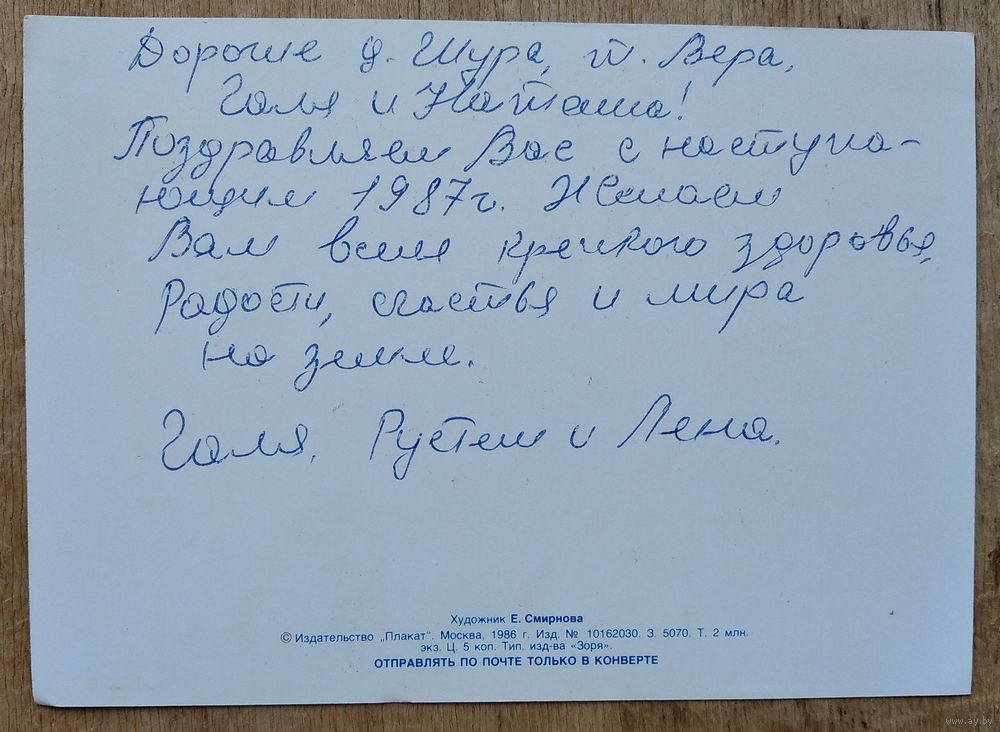 Дорогие д. Шура, т. Вера,
Галя и Наташа!
Поздравляем Вас с наступа-
ющим 1987 г. Желаем
Вам всем крепкого здоровья,
Радости, счастья и мира
на земле.
Галя, Рустем и Лена.
Художник Е. Смирнова
© Издательство „Плакат". Москва, 1986 г. Изд. № 10162030. З. 5070. Т. 2 млн.
экз. Ц. 5 коп. Тип. изд-ва «Зоря».
ОТПРАВЛЯТЬ ПО ПОЧТЕ ТОЛЬКО В КОНВЕРТЕ
www.ay.by